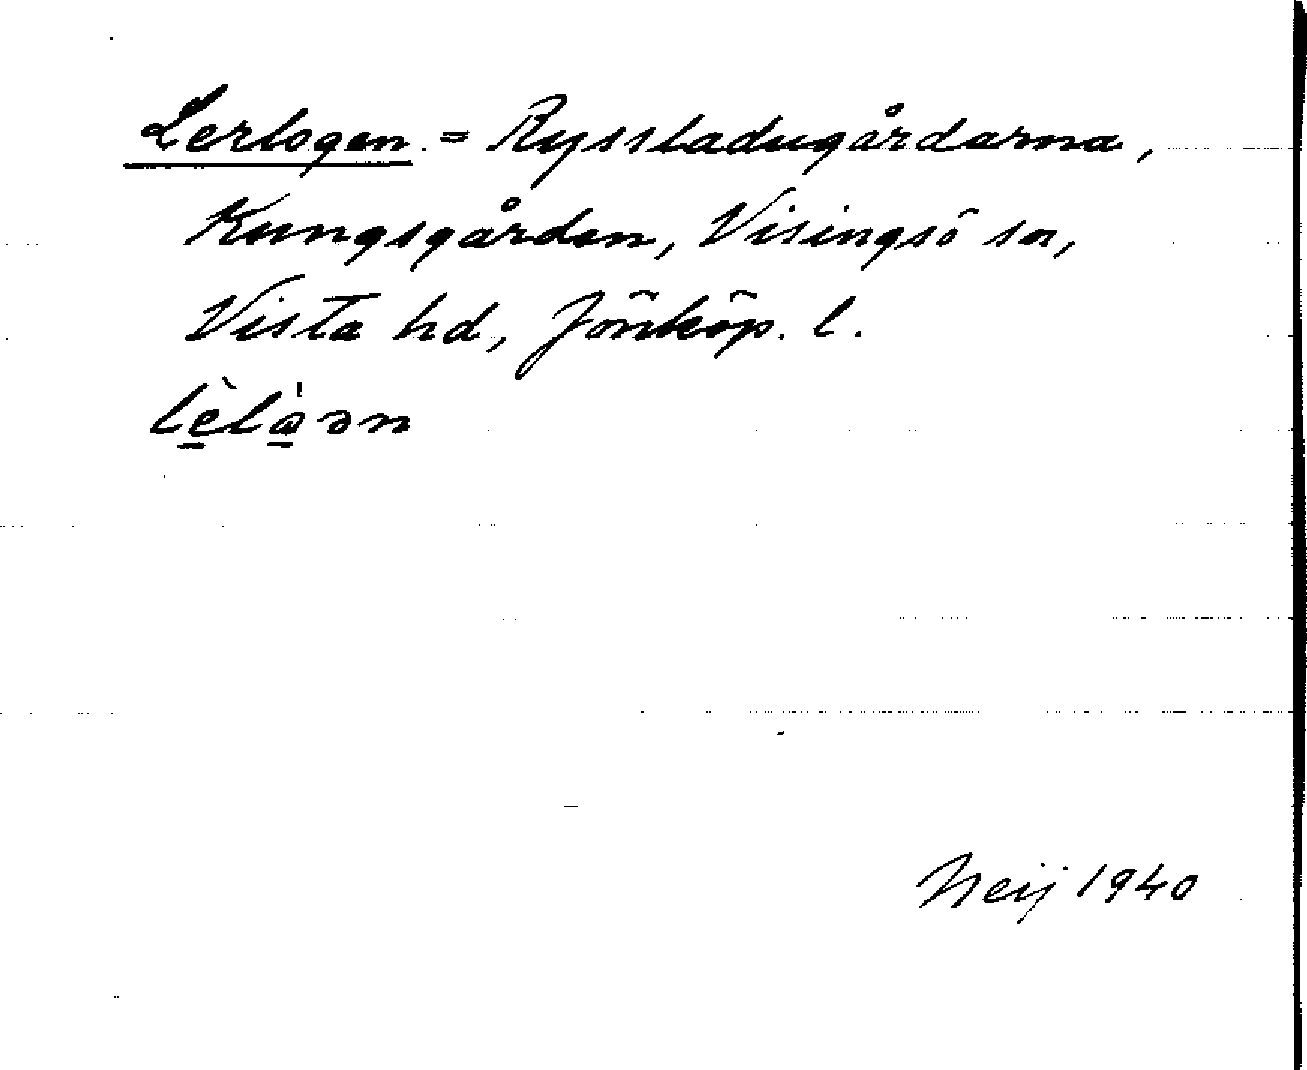 Lerlogen. = Ryssladugårdarna,
Kungsgården, Visingsö sn,
Vista hd, Jönköp. l.
Neij 1940